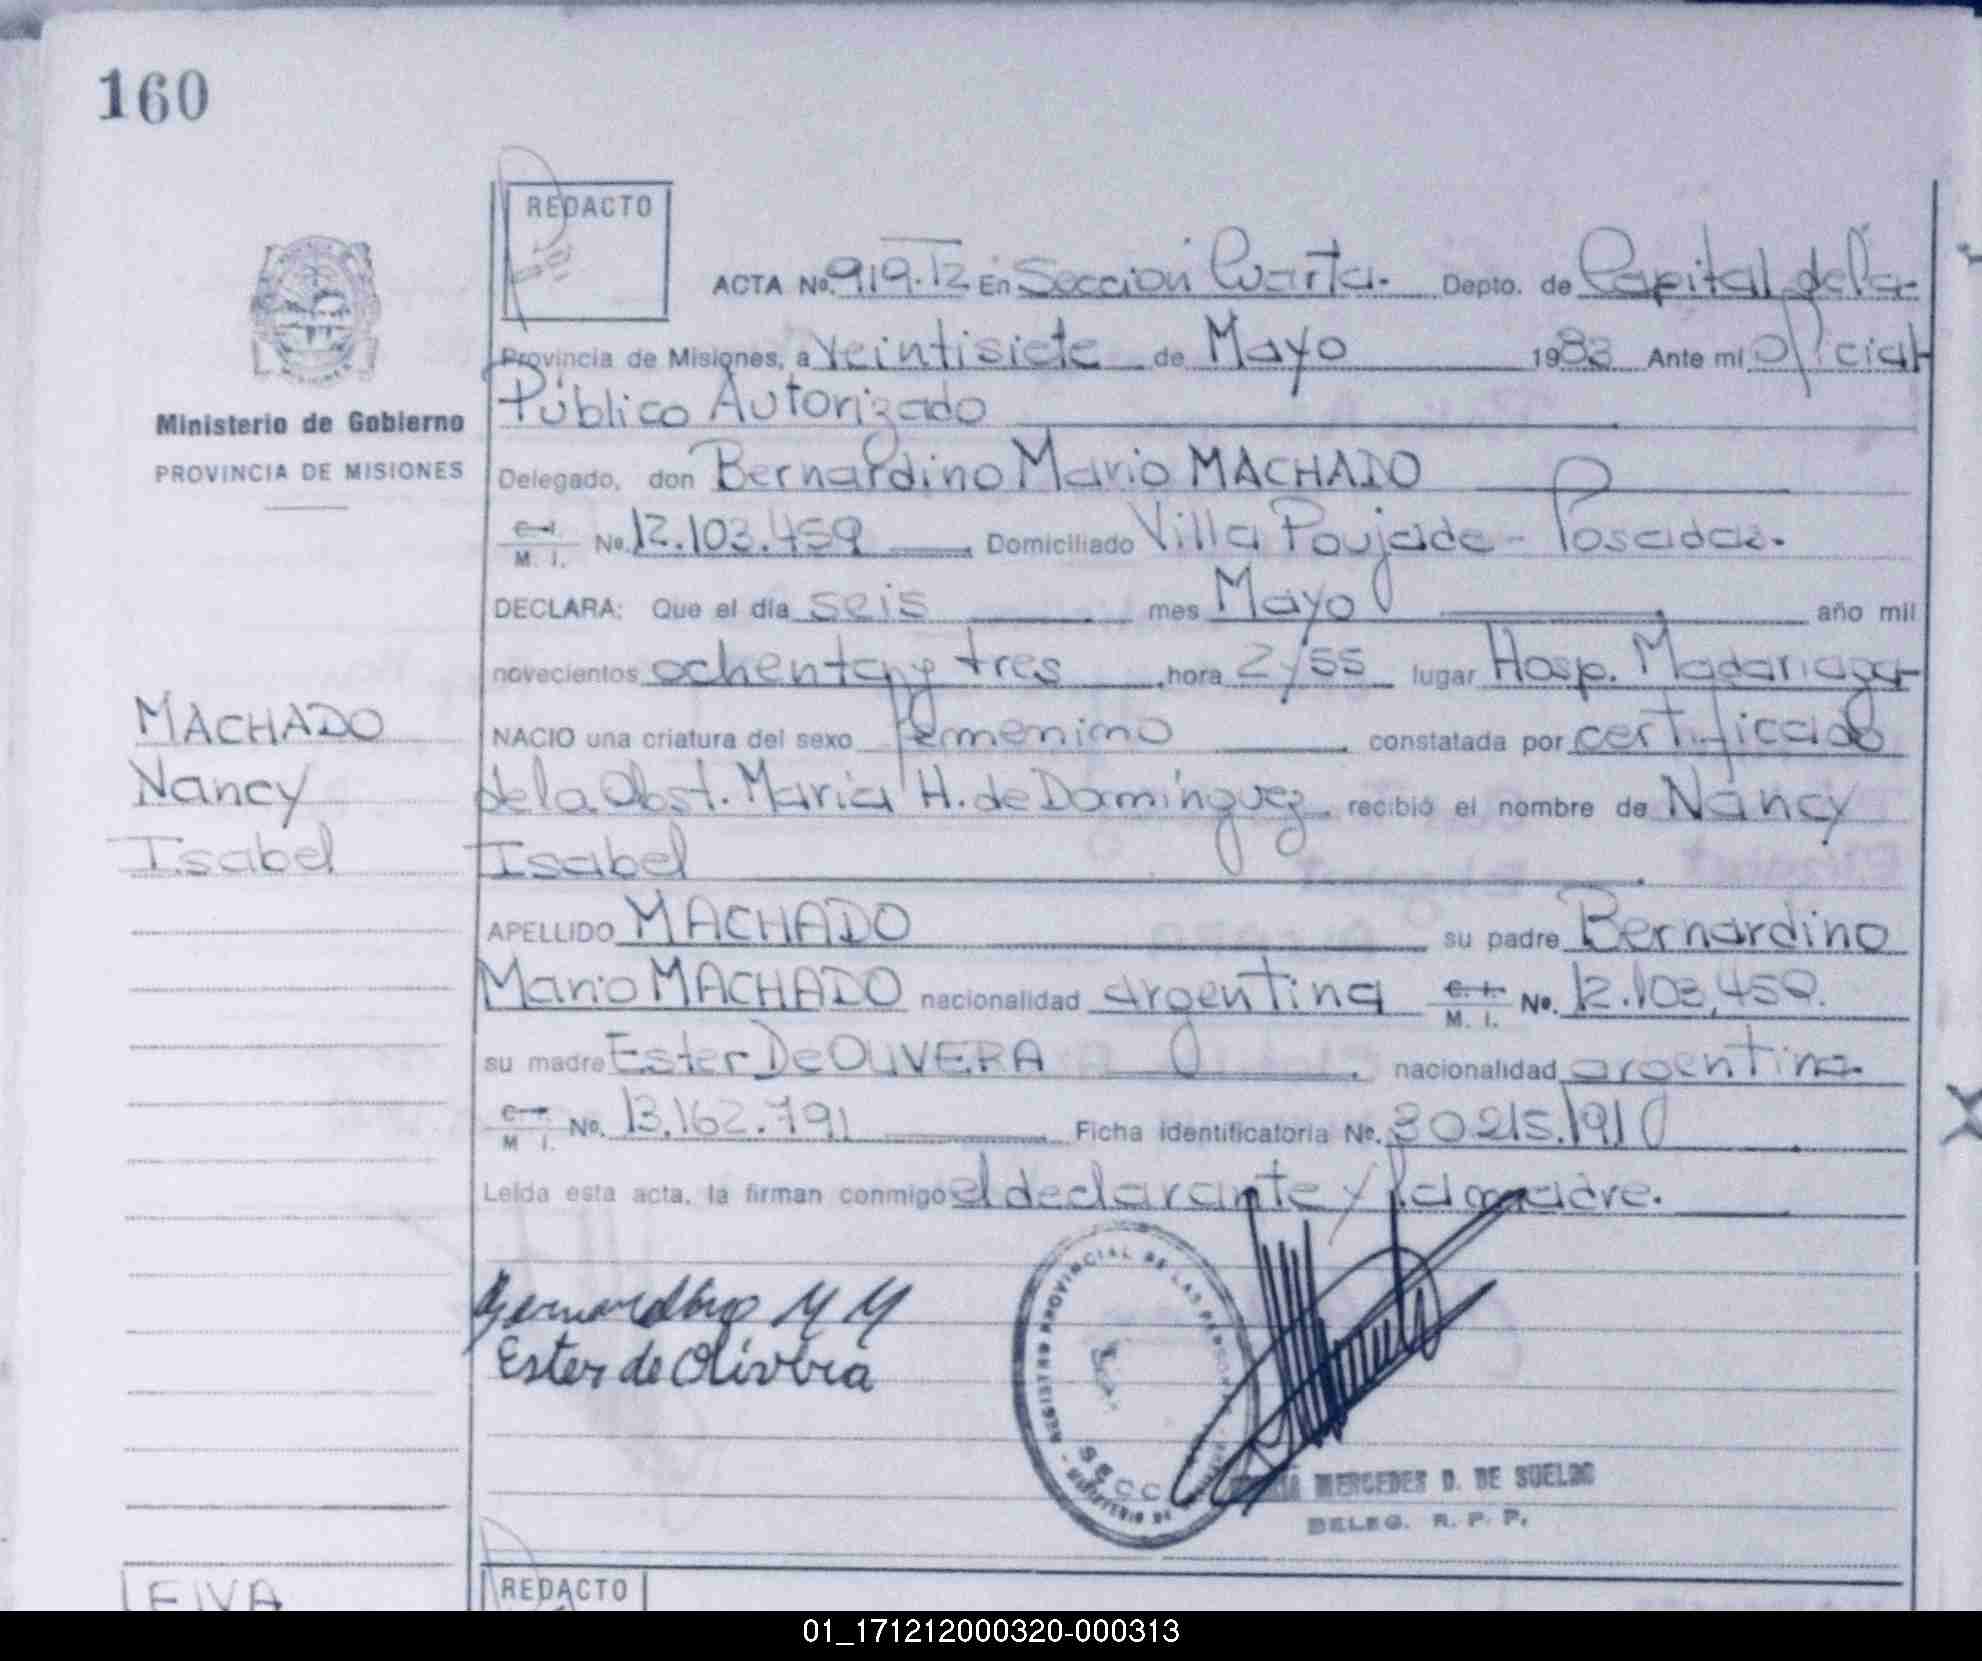 160
REDACTO
ACTA No. 919. T2 En Sección Cuarta. Depto. de Capital de la
Provincia de Misiones, a veintisiete de Mayo 1983 Ante mi oficial
Público Autorizado
Ministerio de Gobierno
PROVINCIA DE MISIONES
Delegado, don Bernardino Mario MACHADO
C. I. M. I. No. 12.103.459 Domiciliado Villa Poujade - Posadas.
DECLARA: Que el día seis mes Mayo año mil
novecientos ochenta y tres hora 2/55 lugar Hosp. Madariaga
MACHADO
Nancy
Isabel
NACIO una criatura del sexo femenino constatada por certificado
de la Obst. Maria H. de Domínguez recibió el nombre de Nancy
Isabel
APELLIDO MACHADO su padre Bernardino
Mario MACHADO nacionalidad argentina C. I. M. I. No. 12.103.459.
su madre Ester De OLIVERA nacionalidad argentina
C. I. M. I. No. 13.162.791 Ficha identificatoria No. 30215.191
Leída esta acta, la firman conmigo el declarante y la madre.
Bernardino M M
Ester de Olivera
REGISTRO PROVINCIAL DE LAS
SECC
MERCEDES D. DE SUELDO
DELEG. R. P. P.
LEIVA
REDACTO
01_171212000320-000313